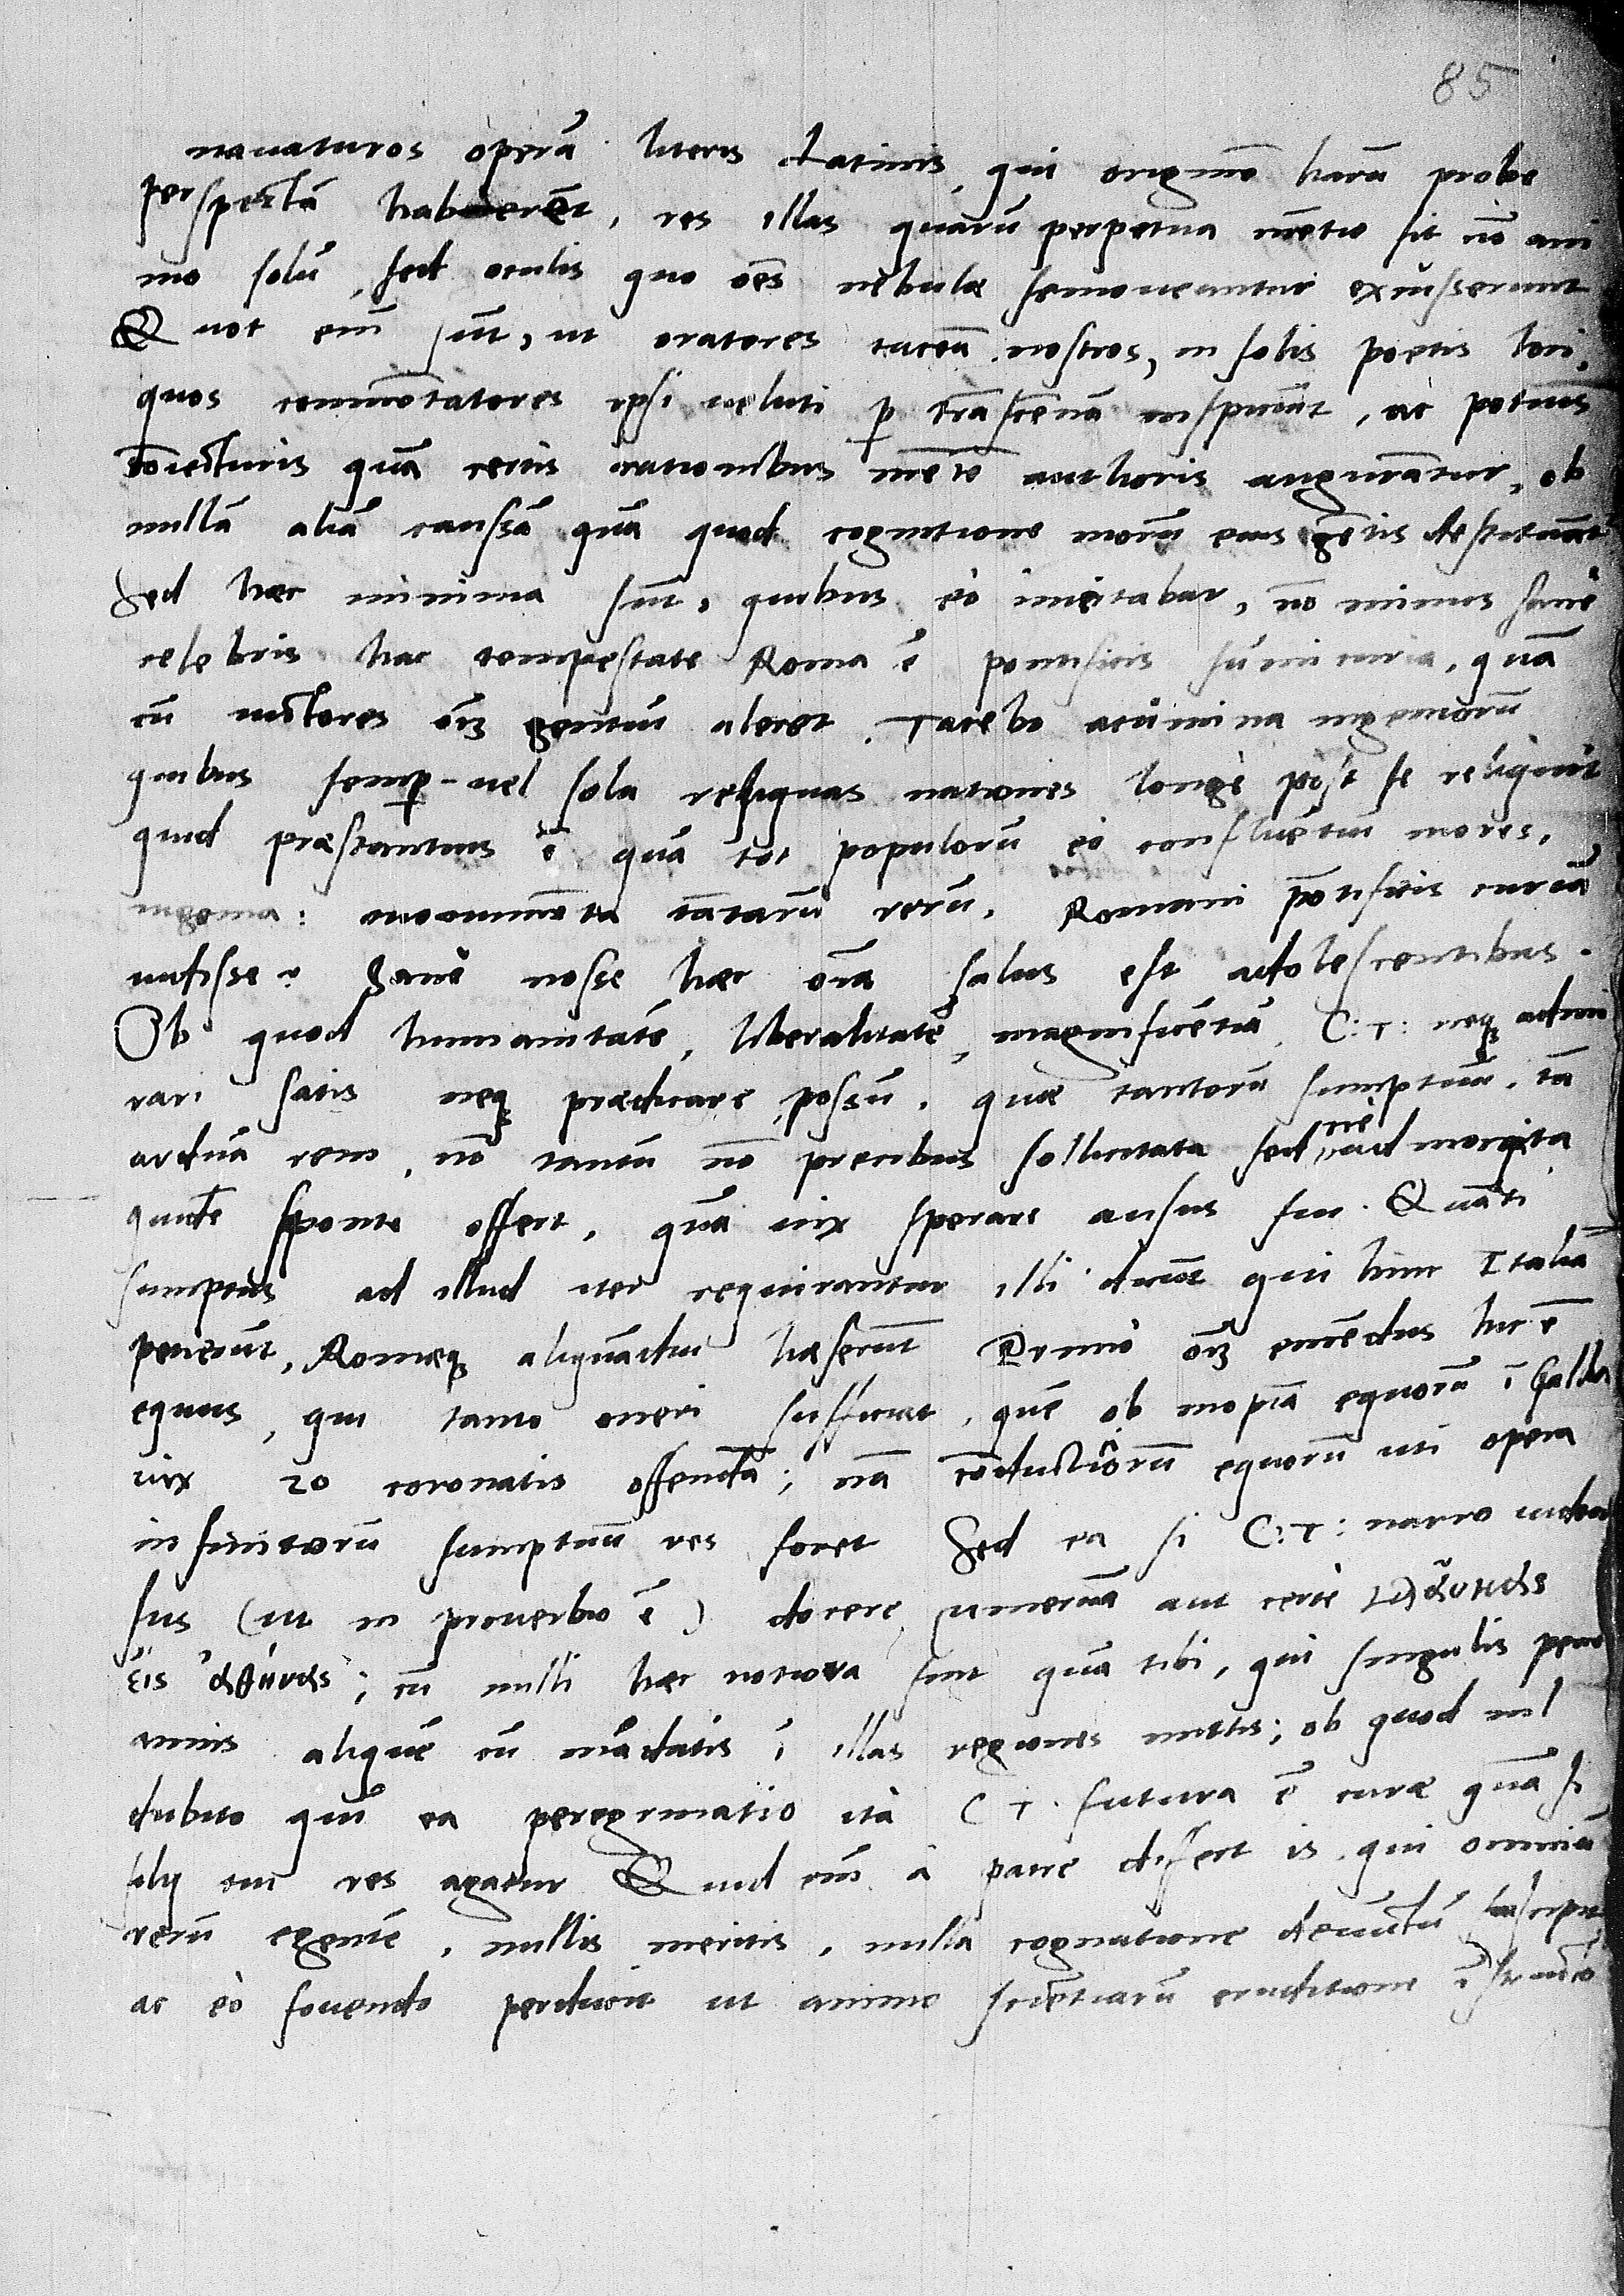 85
nauaturos operā literis Latinis, qui originē harū probe
perspectā haberēt, res illas quarū perpetua mētio fit nō ani
mo solū, sed oculis quo oēs nebulæ semoueantur excusserunt
Quot em̄ sūt, ut oratores taceā nostros, in solis poetis loci,
quos commētatores ipsi ueluti p trāsennā inspiciūt, ac potius
cōiecturis quā certis rationibus mētē authoris augurātur, ob
nullā aliā caussā quā quod cognitione morū eius gētis destituūt
Sed hæc minima sūt, quibus eò inuitabar, nō minus sanè
celebris hac tempestate Roma ē pontificis sūmi curia, quā
cū uictores oīm gentiū aleret. Tacebo acumina ingeniorū
quibus semp uel sola reliquas nationes longè post se reliquit
quid præstantius ē quā tot populorū eò confluētiū mores,
ingenia: monumēta tātarū rerū, Romani pōtificis curiā
uidisse? Sanè nosse hæc oīa salus est adolescentibus.
Ob quod humanitatē, liberalitatē, magnificētiā C: T: neq admi
rari satis neq prædicare possū, quæ tantorū sumptuū, tā
arduā rem, nō tantū nō precibus sollicitata sed nè admonita
quidē sponte offert, quā uix sperare ausus fui. Quāti
sumptus ad illud iter requirantur illi dicūt qui hinc Italiā
petierūt, Romæq aliquādiu hæserūt Primò oīm emēdus hic ē
equus, qui tanto oneri sufficiat, quē ob inopiā equorū ī Gallia
uix 20 coronatis offendā; nā cōductiorū equorū uti opera
infinitorū sumptuū res foret Sed ea si C: T: narro uidear
sus (ut in prouerbio ē) docere mineruā aut certè γλαῦκας
εἰς ἀθήνας; cū nulli hæc notiora sint quā tibi, qui singulis penè
annis aliquē cū mādatis ī illas regiones mittis; ob quod nil
dubito quin ea peregrinatio ità C T. futura ē curæ quā si
filij tui res agatur Quid em̄ à patre differt is, qui omniū
rerū egentē, nullis meritis, nulla cognatione deuictū suscipit
ac eò fouendo perducit ut animo sciētiarū eruditione